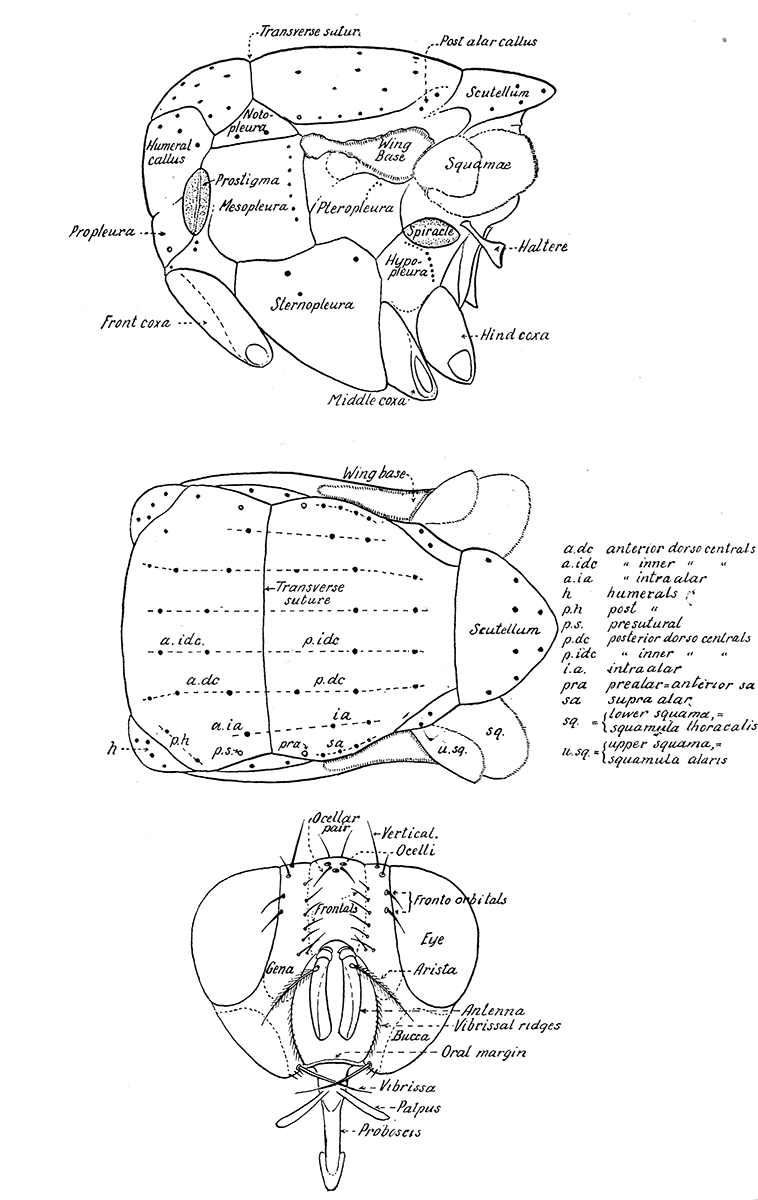 Transverse sutur.
Post alar callus
Scutellum
Noto-
pleura
Humeral
callus
Wing
Base
Squamae
Prostigma
Mesopleura
Pteropleura
Propleura
Spiracle
Haltere
Hypo-
pleura
Sternopleura
Front coxa
Hind coxa
Middle coxa
Wing base
Transverse
suture
Scutellum
a.idc.
p.idc
a.dc
p.dc
a.ia
ia
h
p.h
p.s.
pra
sa
u.sq.
sq.
a.dc anterior dorso centrals
a.idc " inner " "
a.ia " intra alar
h humerals
p.h post "
p.s. presutural
p.dc posterior dorso centrals
p.idc " inner " "
i.a. intra alar
pra prealar=anterior sa
sa supra alar
sq. = {lower squama,=
squamula thoracalis
u.sq.= {upper squama,=
squamula alaris
Ocellar
pair
Vertical.
Ocelli
Fronto orbitals
Frontals
Eye
Gena
Arista
Antenna
Vibrissal ridges
Bucca
Oral margin
Vibrissa
Palpus
Proboscis